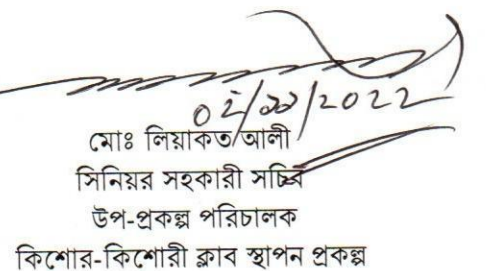 ০২/১১/২০২২
মোঃ লিয়াকত আলী
সিনিয়র সহকারী সচিব
উপ-প্রকল্প পরিচালক
কিশোর-কিশোরী ক্লাব স্থাপন প্রকল্প